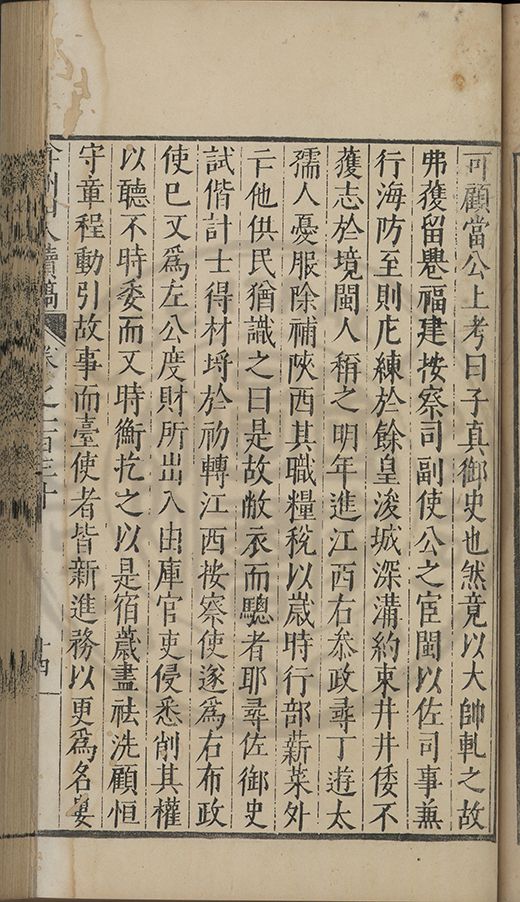 可顧當公上考曰子真御史也然竟以大帥軋之故
弗獲留遷福建按察司副使公之宦閩以佐司事兼
行海防至則庀練於餘皇浚城深溝約束井井倭不
獲志於境閩人稱之明年進江西右叅政尋丁遊太
孺人憂服除補陝西其職糧稅以嵗時行部薪菜外
亡他供民猶識之曰是故敝衣而驄者耶尋佐御史
試偕計士得材埒於初轉江西按察使遂爲右布政
使已又爲左公度財所出入由庫官吏侵悉削其權
以聽不時委而又時衡扢之以是宿蔵盡祛洗顧恒
守童程動引故事而臺使者皆新進務以更爲名
弇州山人續稿 卷之一百三十 十四